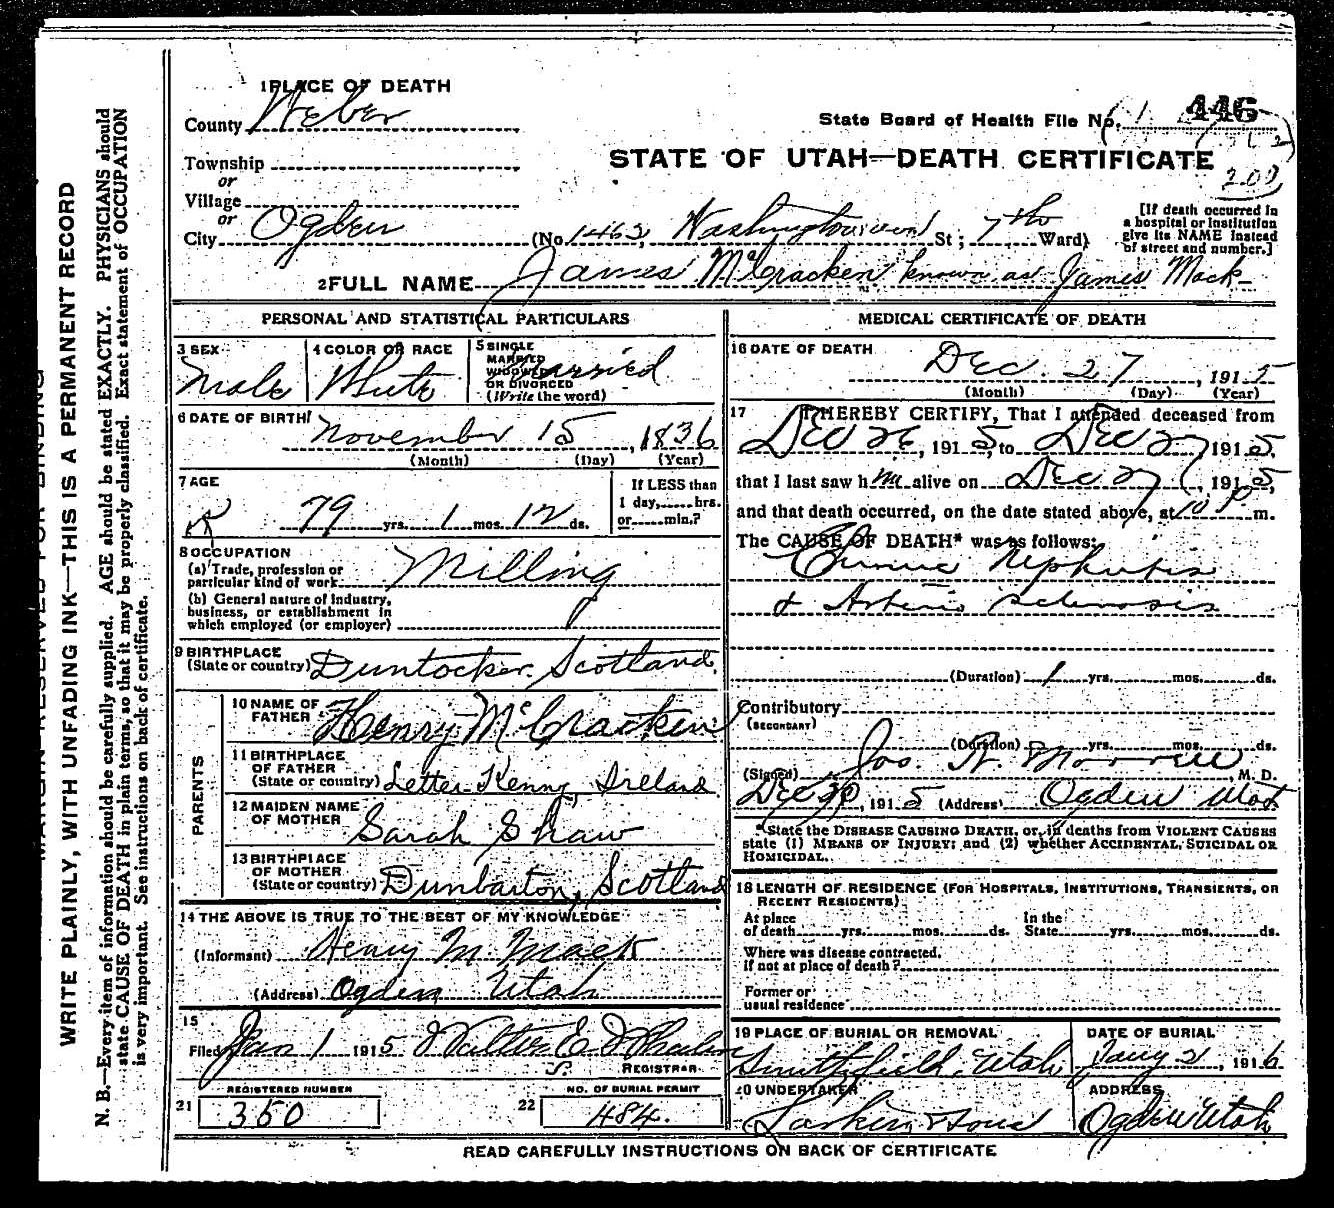 WRITE PLAINLY, WITH UNFADING INK—THIS IS A PERMANENT RECORD
N. B.—Every item of information should be carefully supplied. AGE should be stated EXACTLY. PHYSICIANS should
state CAUSE OF DEATH in plain terms, so that it may be properly classified. Exact statement of OCCUPATION
is very important. See instructions on back of certificate.
1 PLACE OF DEATH
County Weber
State Board of Health File No. 446
Township
STATE OF UTAH—DEATH CERTIFICATE
or
Village
200
or
City Ogden (No. 1463, Washington St; 7th Ward)
[If death occurred in
a hospital or institution
give its NAME instead
of street and number.]
2 FULL NAME James McCracken known as James Mack
PERSONAL AND STATISTICAL PARTICULARS
3 SEX
Male
4 COLOR OR RACE
White
5 SINGLE
MARRIED
WIDOWED
OR DIVORCED
(Write the word)
Married
6 DATE OF BIRTH
November 15, 1836
(Month) (Day) (Year)
7 AGE
79 yrs. 1 mos. 12 ds.
If LESS than
1 day, hrs.
or min.?
8 OCCUPATION
(a) Trade, profession or
particular kind of work Milling
(b) General nature of industry,
business, or establishment in
which employed (or employer)
9 BIRTHPLACE
(State or country) Duntocker, Scotland
PARENTS
10 NAME OF
FATHER Henry McCracken
11 BIRTHPLACE
OF FATHER
(State or country) Letter Kenny, Ireland
12 MAIDEN NAME
OF MOTHER Sarah Shaw
13 BIRTHPLACE
OF MOTHER
(State or country) Dunbarton, Scotland
14 THE ABOVE IS TRUE TO THE BEST OF MY KNOWLEDGE
(Informant) Henry M. Mack
(Address) Ogden Utah
15
Filed Jan 1 1915 Walter E.
REGISTRAR
REGISTERED NUMBER
21 350
NO. OF BURIAL PERMIT
22 484.
MEDICAL CERTIFICATE OF DEATH
16 DATE OF DEATH
Dec. 27, 1915
(Month) (Day) (Year)
17 I HEREBY CERTIFY, That I attended deceased from
Dec 26, 1915, to Dec 27, 1915,
that I last saw h m alive on Dec 27, 1915,
and that death occurred, on the date stated above, at 10 P. m.
The CAUSE OF DEATH* was as follows:
Chronic Nephritis
& Arterio sclerosis
(Duration) 1 yrs. mos. ds.
Contributory
(SECONDARY)
(Duration) yrs. mos. ds.
(Signed) Jos. R. Morrell, M. D.
Dec 30, 1915 (Address) Ogden Utah
*State the DISEASE CAUSING DEATH, or, in deaths from VIOLENT CAUSES
state (1) MEANS OF INJURY; and (2) whether ACCIDENTAL, SUICIDAL OR
HOMICIDAL.
18 LENGTH OF RESIDENCE (FOR HOSPITALS, INSTITUTIONS, TRANSIENTS, OR
RECENT RESIDENTS)
At place In the
of death yrs. mos. ds. State yrs. mos. ds.
Where was disease contracted,
if not at place of death?
Former or
usual residence
19 PLACE OF BURIAL OR REMOVAL
Smithfield, Utah
DATE OF BURIAL
Jany 2, 1916
20 UNDERTAKER
Larkin & Sons
ADDRESS
Ogden Utah
READ CAREFULLY INSTRUCTIONS ON BACK OF CERTIFICATE